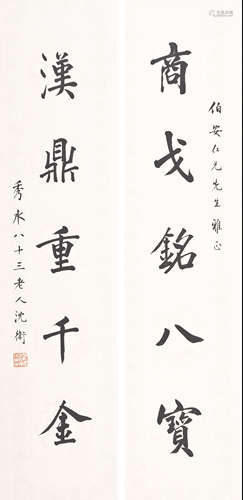 伯安仁兄先生雅正
商戈銘八寶
漢鼎重千金
秀水八十三老人沈衛